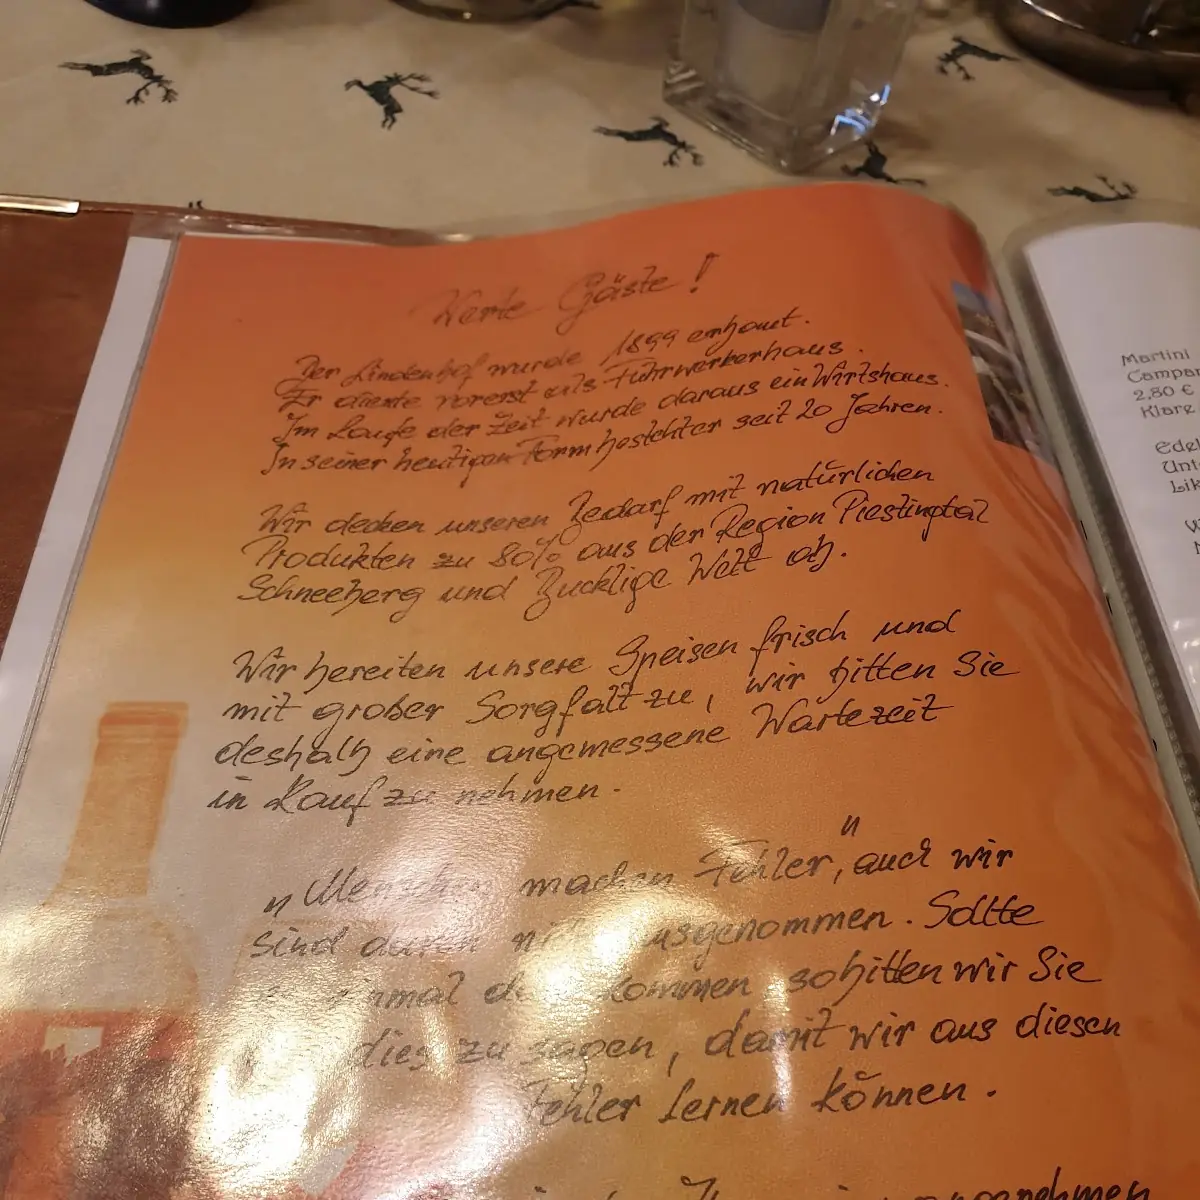 Werte Gäste!
Der Lindenhof wurde 1899 erbaut.
Er diente vorerst als Fuhrwerkerhaus.
Im Laufe der Zeit wurde daraus ein Wirtshaus.
In seiner heutigen Form besteht er seit 20 Jahren.
Wir decken unseren Bedarf mit natürlichen
Produkten zu 80% aus der Region Piestingtal
Schneeberg und Bucklige Welt ab.
Wir bereiten unsere Speisen frisch und
mit großer Sorgfalt zu, wir bitten Sie
deshalb eine angemessene Wartezeit
in Kauf zu nehmen.
"Menschen machen Fehler", auch wir
sind davon ausgenommen. Sollte
kommen so bitten wir Sie
dies zu sagen, damit wir aus diesen
Fehler lernen können.
Martini
2,80 €
Klare